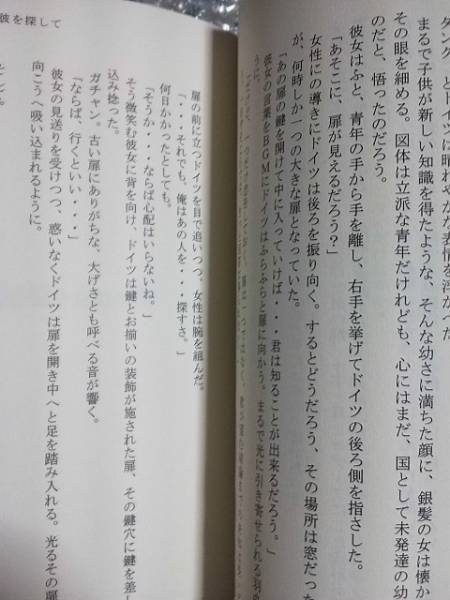 タンク　とドイツは晴れやかな表情を浮かべた
まるで子供が新しい知識を得たような、そんな幼さに満ちた顔に、銀髪の女は懐か
その眼を細める。図体は立派な青年だけれども、心にはまだ、国として未発達の幼
のだと、悟ったのだろう。
彼女はふと、青年の手から手を離し、右手を挙げてドイツの後ろ側を指さした。
「あそこに、扉が見えるだろう？」
女性にの導きにドイツは後ろを振り向く。するとどうだろう、その場所は窓だった
が、何時しか一つの大きな扉となっていた。
「あの扉の鍵を開けて中に入っていけば・・・君は知ることが出来るだろう。」
彼女の言葉をBGMにドイツはふらふらと扉に向かう。まるで光に引き寄せられる羽虫
うに。
彼を探して
扉の前に立つドイツを目で追いつつ、女性は腕を組んだ。
「・・・それでも、俺はあの人を・・・探すさ。」
何日かかったとしても。
「そうか・・・ならば心配はいらないね。」
そう微笑む彼女に背を向け、ドイツは鍵とお揃いの装飾が施された扉、その鍵穴に鍵を差し
込み捻った。
ガチャン。古い扉にありがちな、大げさとも呼べる音が響く。
「ならば、行くといい・・・」
彼女の見送りを受けつつ、惑いなくドイツは扉を開き中へと足を踏み入れる。光るその扉
向こうへ吸い込まれるように。